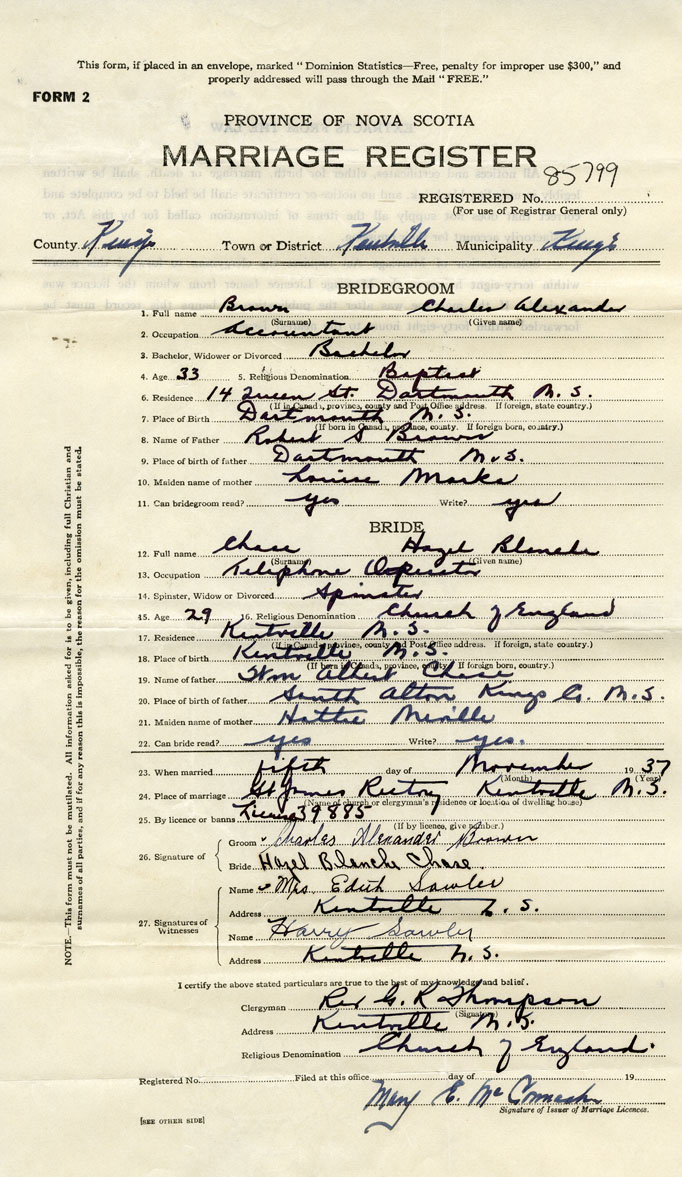 This form, if placed in an envelope, marked "Dominion Statistics—Free, penalty for improper use $300," and
properly addressed will pass through the Mail "FREE."
FORM 2
PROVINCE OF NOVA SCOTIA
MARRIAGE REGISTER
REGISTERED No. 85799
(For use of Registrar General only)
County Kings Town or District Kentville Municipality Kings
BRIDEGROOM
1. Full name Brown Charles Alexander
(Surname) (Given name)
2. Occupation Accountant
3. Bachelor, Widower or Divorced Bachelor
4. Age 33 5. Religious Denomination Baptist
6. Residence 14 Queen St. Dartmouth N. S.
(If in Canada, province, county and Post Office address. If foreign, state country.)
7. Place of Birth Dartmouth N. S.
(If born in Canada, province, county. If foreign born, country.)
8. Name of Father Robert S Brown
9. Place of birth of father Dartmouth N.S.
10. Maiden name of mother Louise Marks
11. Can bridegroom read? yes Write? yes
BRIDE
12. Full name Chase Hazel Blanche
(Surname) (Given name)
13. Occupation Telephone Operator
14. Spinster, Widow or Divorced Spinster
15. Age 29 16. Religious Denomination Church of England
17. Residence Kentville N. S.
(If in Canada, province, county and Post Office address. If foreign, state country.)
18. Place of birth Kentville N. S.
(If born in Canada, province, county. If foreign born, country.)
19. Name of father Wm Albert Chase
20. Place of birth of father South Alton Kings Co. N. S.
21. Maiden name of mother Hattie Neville
22. Can bride read? yes Write? yes.
23. When married fifth day of November 1937
(Month) (Year)
24. Place of marriage St James Rectory Kentville N. S.
(Name of church or clergyman's residence or location of dwelling house)
25. By licence or banns License 39885
(If by licence, give number.)
26. Signature of
Groom Charles Alexander Brown
Bride Hazel Blanche Chase.
27. Signatures of Witnesses
Name Mrs Edith Sawler
Address Kentville N. S.
Name Harry Sawler
Address Kentville N. S.
I certify the above stated particulars are true to the best of my knowledge and belief.
Clergyman Rev G. R Thompson
(Signature)
Address Kentville N. S.
Religious Denomination Church of England.
Registered No. Filed at this office day of 19
Mary E. McComack
Signature of Issuer of Marriage Licences.
[SEE OTHER SIDE]
NOTE.—This form must not be mutilated. All information asked for is to be given, including full Christian and
surnames of all parties, and if for any reason this is impossible, the reason for the omission must be stated.